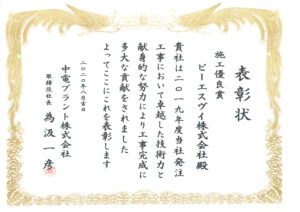 表彰状
施工優良賞
ピーエスヴイ株式会社殿
貴社は二〇一九年度当社発注
工事において卓越した技術力と
献身的な努力により工事完成に
多大な貢献をされました
よってここにこれを表彰します
二〇二〇年八月吉日
中電プラント株式会社
取締役社長 為沢一彦